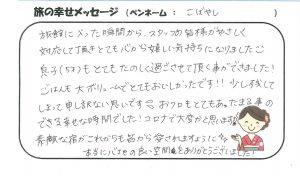 旅の幸せメッセージ (ペンネーム : こばやし )
旅館に入った瞬間から、スタッフの皆様がやさしく
対応して頂きとても心から嬉しい気持ちになりました♡
息子(5才)もとてもたのしく過ごさせて頂く事ができました!
ごはんも大ボリュームでとてもおいしかったです!! 少し残して
しまって申し訳ない思いです おフロもとてもあったまる事の
できる幸せな時間でした! コロナで大変かと思いますが
素敵な宿がこれからも皆から愛されますように
本当にバスもの良い空間をありがとうございました!